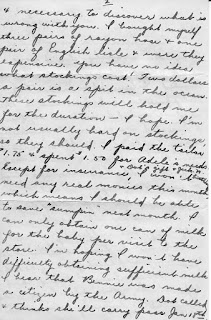 2
& necessary to discover what is
wrong with you. I bought myself
three pairs of rayon hose & one
pair of English lisle & were they
expensive. You have no idea
what stockings cost! Two dollars
a pair is a spit in the ocean.
These stockings will hold me
for the duration - I hope. I'm
not usually hard on stockings,
so they should. I paid the tailor
$1.75 & spent $1.50 for Adele's
Except for insurance, I
need any real monies this month
which means I should be able
to save sumpin next month. I
can only obtain one can of milk
for the baby per visit to the
store. I'm hoping I won't have
difficulty obtaining sufficient milk.
I hear that Bennie was made
a citizen by the Army. Dot called
& thinks she'll carry past Jan 15th